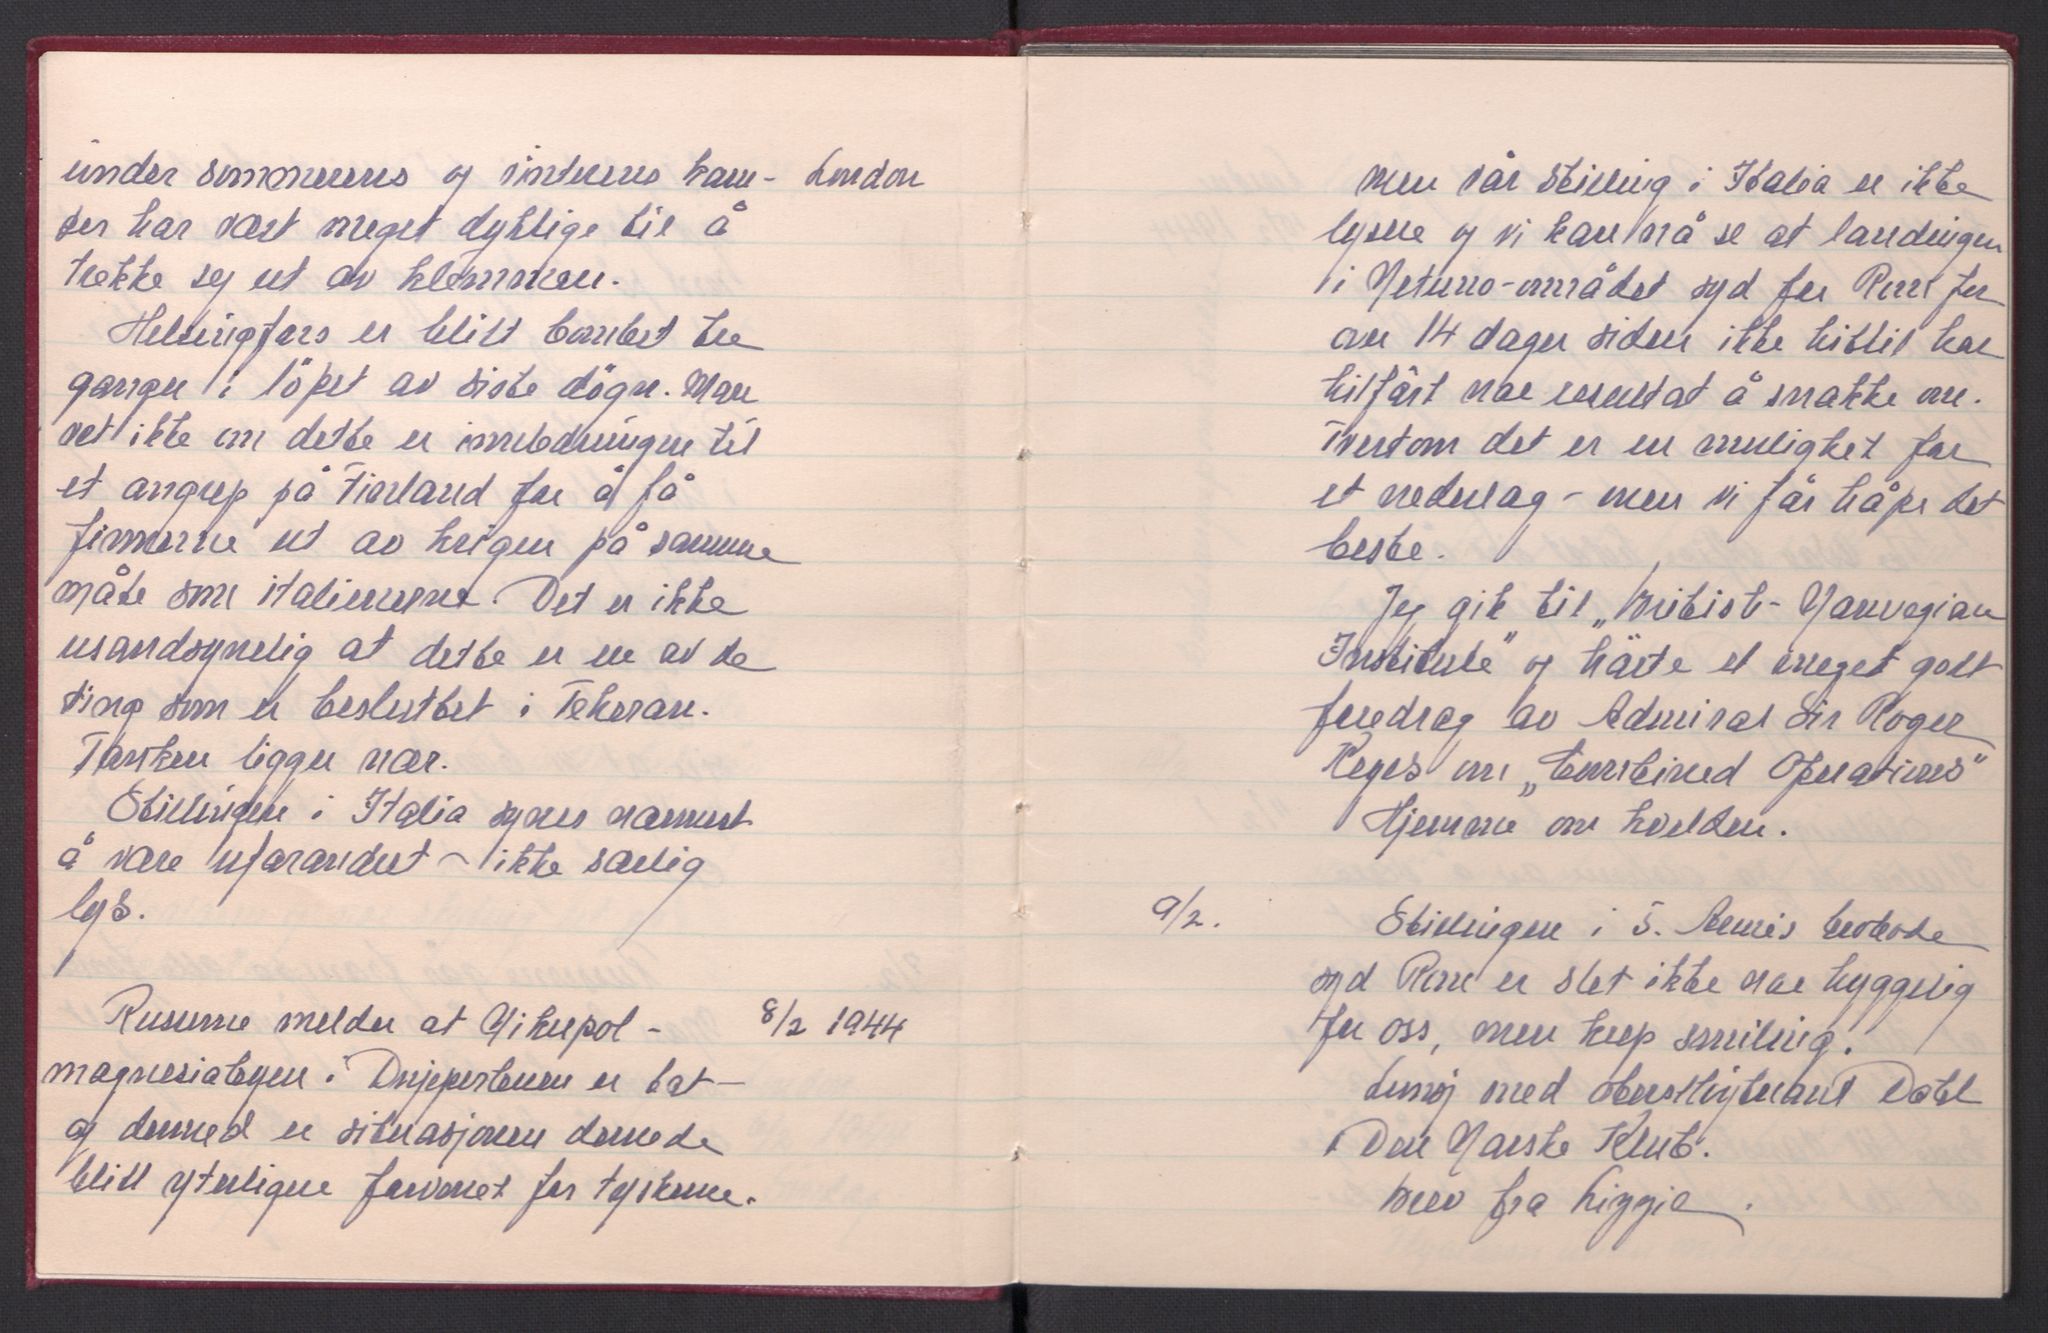 under sommerens og vinterens kam- London
per har vært meget dyktige til å
trekke seg ut av klemmen.
Helsingfors er blitt bombet tre
ganger i löpet av siste dögn. Man
vet ikke om dette er innledningen til
et angrep på Finland for å få
finnerne ut av krigen på samme
måte som italienerne. Det er ikke
usandsynelig at dette er en av de
ting som er besluttet i Teheran.
Tanken ligger nær.
Stillingen i Italia synes nærmest
å være uforandret - ikke særlig
lys.
Russerne melder at Nikopol - 8/2 1944
magnesiabyen i Dnjeperbuen er tatt -
og dermed er situasjonen dernede
blitt ytterligere forverret for tyskerne.
men vår stilling i Italia er ikke
lysere og vi kan nå se at landingen
i Netuno-området syd for Rom for
over 14 dager siden ikke hittil har
tilfört noe resultat å snakke om.
Tvertom det er en mulighet for
et nederlag - men vi får håpe det
beste.
Jeg gik til „British-Norwegian
Institute" og hörte et meget godt
foredrag av Admiral Sir Roger
Keyes om „Combined Operations"
Hjemme om kvelden.
9/2. Stillingen i 5. Armés brohode
syd Rom er slet ikke noe hyggelig
for oss, men keep smiling.
Lunsj med oberstlöytenant Dahl
i Den Norske Klub.
Brev fra Lizzie.